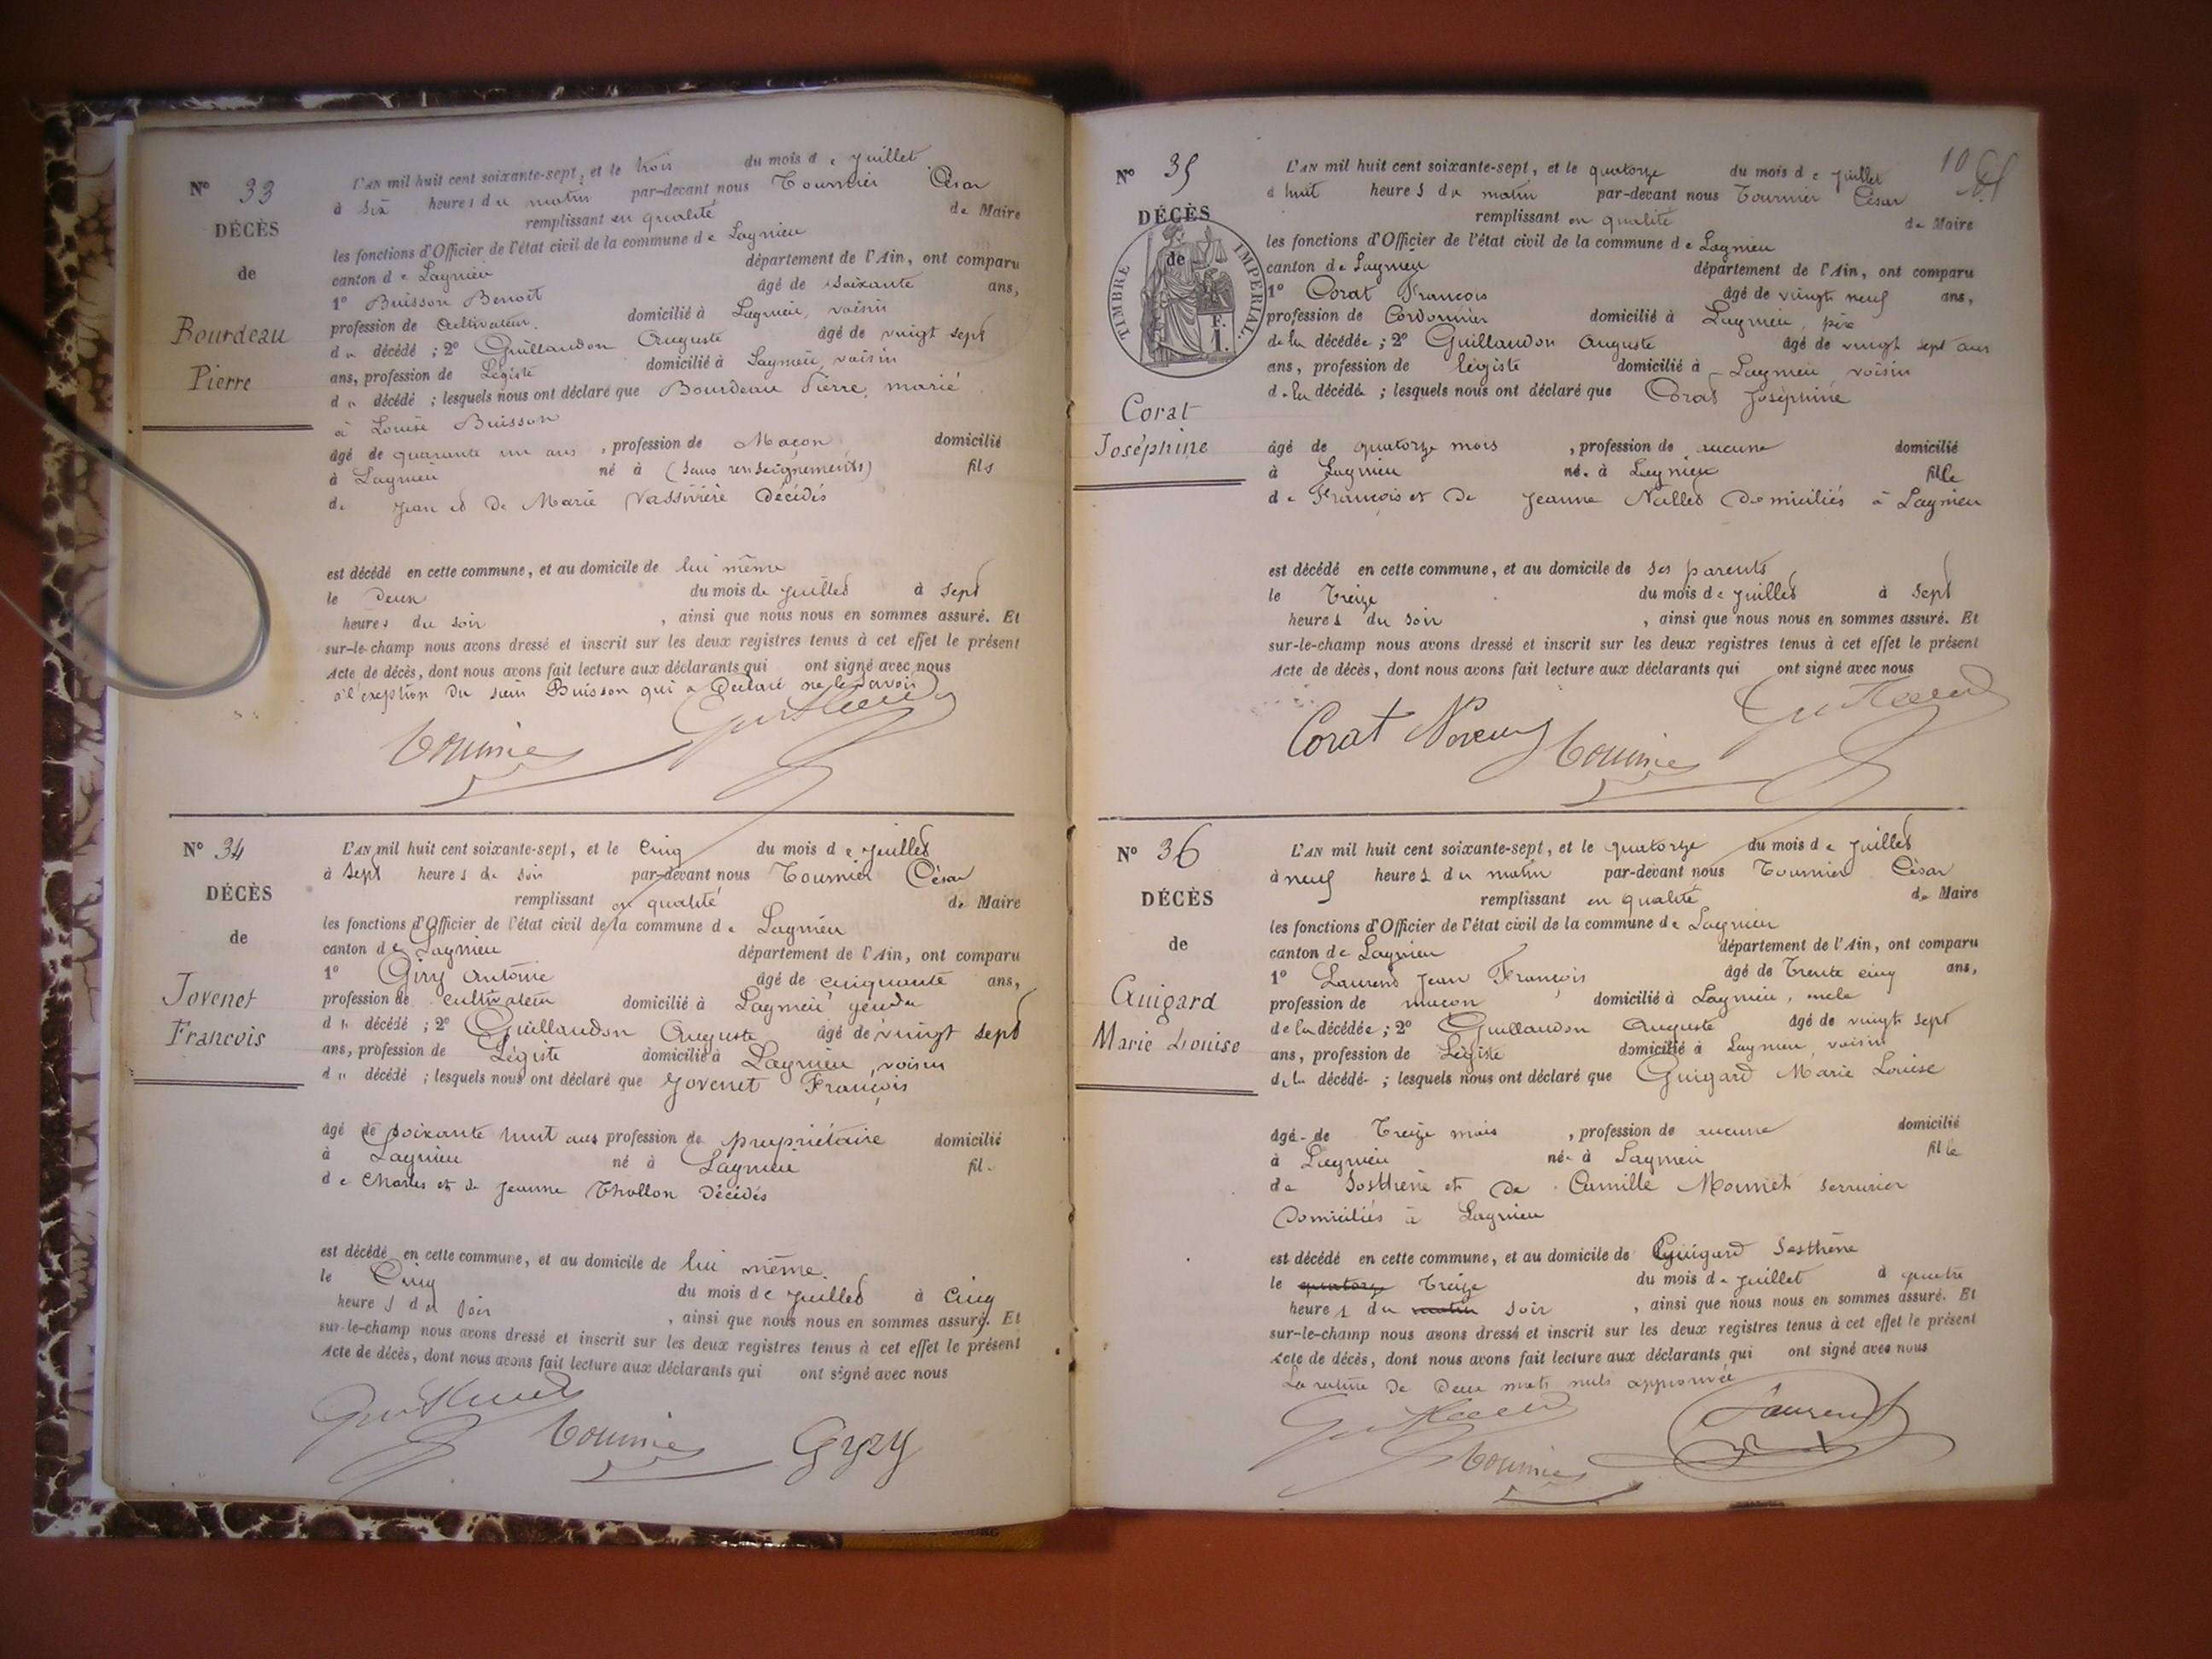 N° 33
DÉCÈS
de
Bourdeau
Pierre
L'AN mil huit cent soixante-sept, et le trois du mois de juillet
à six heures du matin par-devant nous Tournier César
remplissant en qualité de Maire
les fonctions d'Officier de l'état civil de la commune de Lagnieu
canton de Lagnieu département de l'Ain, ont comparu
1° Buisson Benoît âgé de soixante ans,
profession de cultivateur. domicilié à Lagnieu, voisin
du décédé ; 2° Guillaudon Auguste âgé de vingt sept
ans, profession de Légiste domicilié à Lagnieu, voisin
du décédé ; lesquels nous ont déclaré que Bourdeau Pierre, marié
à Louise Buisson
âgé de quarante un ans , profession de Maçon domicilié
à Lagnieu né à (sans renseignements) fils
de Jean et de Marie Vassivière Décédés
est décédé en cette commune, et au domicile de lui même
le Deux du mois de juillet à sept
heures du soir , ainsi que nous nous en sommes assuré. Et
sur-le-champ nous avons dressé et inscrit sur les deux registres tenus à cet effet le présent
Acte de décès, dont nous avons fait lecture aux déclarants qui ont signé avec nous
à l'exeption du sieur Buisson qui a Déclaré ne le savoir
Tournier
N° 34
DÉCÈS
de
Jovenet
François
L'AN mil huit cent soixante-sept, et le cinq du mois de juillet
à sept heures du soir par-devant nous Tournier César
remplissant en qualité de Maire
les fonctions d'Officier de l'état civil de la commune de Lagnieu
canton de Lagnieu département de l'Ain, ont comparu
1° Giry Antoine âgé de cinquante ans,
profession de cultivateur domicilié à Lagnieu gendre
du décédé ; 2° Guillaudon Auguste âgé de vingt sept
ans, profession de Légiste domicilié à Lagnieu, voisin
du décédé ; lesquels nous ont déclaré que Jovenet François
âgé de soixante huit ans profession de propriétaire domicilié
à Lagnieu né à Lagnieu fil
de Charles et de Jeanne Thollon Décédés
est décédé en cette commune, et au domicile de lui même.
le Cinq du mois de juillet à cinq
heures du soir , ainsi que nous nous en sommes assuré. Et
sur-le-champ nous avons dressé et inscrit sur les deux registres tenus à cet effet le présent
Acte de décès, dont nous avons fait lecture aux déclarants qui ont signé avec nous
Tournier Gyry
10
N° 35
DÉCÈS
de
TIMBRE IMPERIAL.
F.
1.
Corat
Joséphine
L'AN mil huit cent soixante-sept, et le quatorze du mois de juillet
à huit heures du matin par-devant nous Tournier César
remplissant en qualité de Maire
les fonctions d'Officier de l'état civil de la commune de Lagnieu
canton de Lagnieu département de l'Ain, ont comparu
1° Corat François âgé de vingt neuf ans,
profession de Cordonnier domicilié à Lagnieu, père
de la décédée ; 2° Guillaudon Auguste âgé de vingt sept ans
ans, profession de légiste domicilié à Lagnieu voisin
de la décédée ; lesquels nous ont déclaré que Corat Joséphine
âgé de quatorze mois , profession de aucune domicilié
à Lagnieu née à Lagnieu fille
de François et de Jeanne Nallet domiciliés à Lagnieu
est décédé en cette commune, et au domicile de ses parents
le Treize du mois de juillet à sept
heures du soir , ainsi que nous nous en sommes assuré. Et
sur-le-champ nous avons dressé et inscrit sur les deux registres tenus à cet effet le présent
Acte de décès, dont nous avons fait lecture aux déclarants qui ont signé avec nous
Corat Tournier
N° 36
DÉCÈS
de
Guigard
Marie Louise
L'AN mil huit cent soixante-sept, et le quatorze du mois de juillet
à neuf heures du matin par-devant nous Tournier César
remplissant en qualité de Maire
les fonctions d'Officier de l'état civil de la commune de Lagnieu
canton de Lagnieu département de l'Ain, ont comparu
1° Laurent Jean François âgé de Trente cinq ans,
profession de maçon domicilié à Lagnieu, oncle
de la décédée ; 2° Guillaudon Auguste âgé de vingt sept
ans, profession de Légiste domicilié à Lagnieu, voisin
de la décédé ; lesquels nous ont déclaré que Guigard Marie Louise
âgé de Treize mois , profession de aucune domicilié
à Lagnieu née à Lagnieu fille
de Sosthène et de Camille Monnet serrurier
Domiciliés à Lagnieu
est décédé en cette commune, et au domicile de Guigard Sosthène
le quatorze Treize du mois de juillet à quatre
heures du matin soir , ainsi que nous nous en sommes assuré. Et
sur-le-champ nous avons dressé et inscrit sur les deux registres tenus à cet effet le présent
Acte de décès, dont nous avons fait lecture aux déclarants qui ont signé avec nous
La rature de deux mots nuls approuvée
Laurent
Tournier